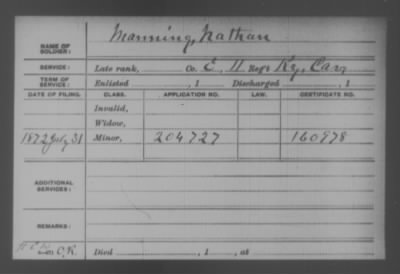 NAME OF SOLDIER: Manning, Nathan
SERVICE: Late rank, Co. E, 11 Reg't Ky. Cav.
TERM OF SERVICE: Enlisted , 1 Discharged , 1
DATE OF FILING. CLASS. APPLICATION NO. LAW. CERTIFICATE NO.
Invalid,
Widow,
1872 July 31 Minor, 204727 160878
ADDITIONAL SERVICES:
REMARKS:
C.R. Died , 1 , at